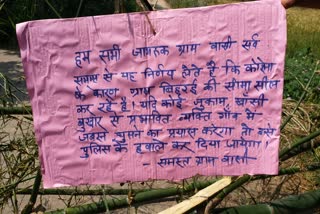 हम सभी जागरूक ग्राम वासी सर्व
सम्मत से यह निर्णय लेते है कि कोरोना
के कारण ग्राम की सीमा सील
कर रहे है। यदि कोई जुकाम, खासी
बुखार से प्रभावित व्यक्ति गाँव में
जबरन घुसने का प्रयास करेगा तो उसे
पुलिस के हवाले कर दिया जायेगा।
- समस्त ग्राम वासी